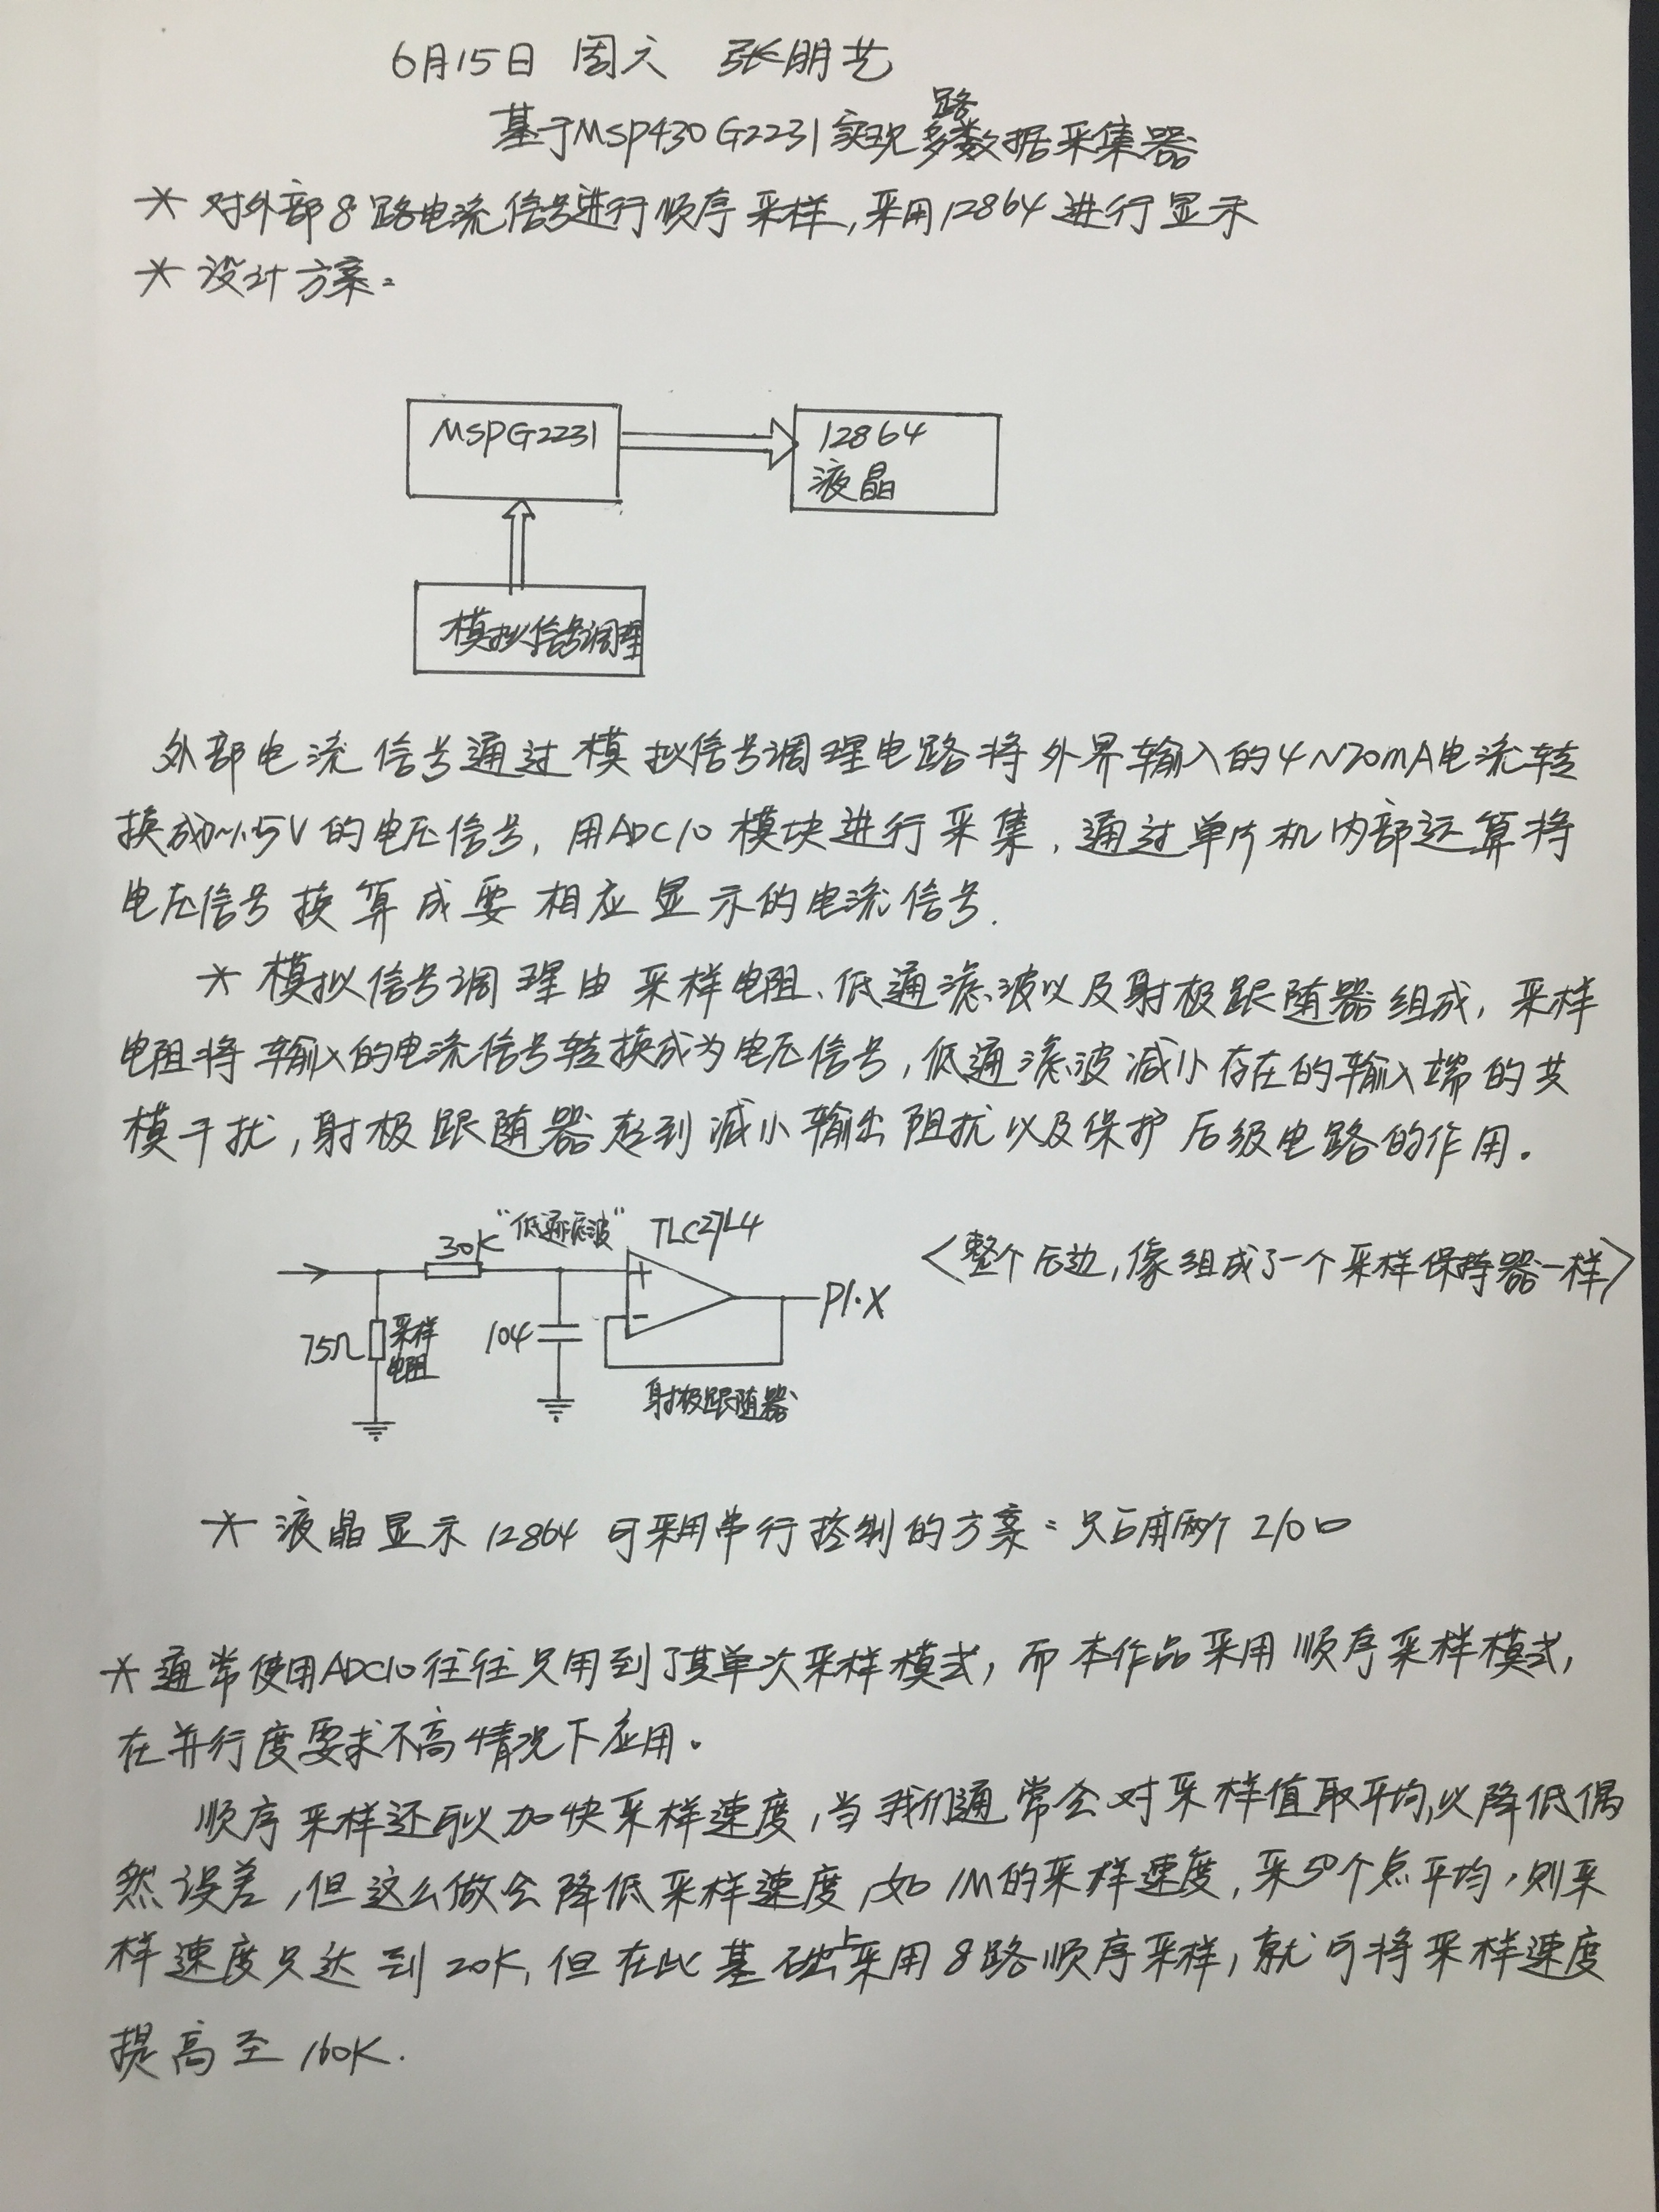 6月15日 周六 张朋艺
基于MSP430G2231实现多路数据采集器
* 对外部8路电流信号进行顺序采样,采用12864进行显示
* 设计方案:
MSPG2231
12864
液晶
模拟信号调理
外部电流信号通过模拟信号调理电路将外界输入的4~20mA电流转
换成0~1.5V的电压信号,用ADC10模块进行采集,通过单片机内部运算将
电压信号换算成要相应显示的电流信号.
* 模拟信号调理由采样电阻、低通滤波以及射极跟随器组成,采样
电阻将输入的电流信号转换成为电压信号,低通滤波减小存在的输入端的共
模干扰,射极跟随器起到减小输出阻抗以及保护后级电路的作用。
30K "低通滤波" TLC27L4
<整个后边,像组成了一个采样保持器一样>
+
-
P1.X
75Ω 采样
电阻
104
射极跟随器
* 液晶显示12864可采用串行控制的方案:只占用两个I/O口
* 通常使用ADC10往往只用到了其单次采样模式,而本作品采用顺序采样模式,
在并行度要求不高情况下应用。
顺序采样还可以加快采样速度,当我们通常会对采样值取平均,以降低偶
然误差,但这么做会降低采样速度,如1M的采样速度,采50个点平均,则采
样速度只达到20K,但在此基础上采用8路顺序采样,就可将采样速度
提高至160K.